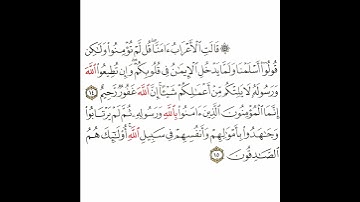 ۞ قَالَتِ ٱلْأَعْرَابُ ءَامَنَّا ۖ قُل لَّمْ تُؤْمِنُوا۟ وَلَٰكِن
قُولُوٓا۟ أَسْلَمْنَا وَلَمَّا يَدْخُلِ ٱلْإِيمَٰنُ فِى قُلُوبِكُمْ ۖ وَإِن تُطِيعُوا۟ ٱللَّهَ
وَرَسُولَهُۥ لَا يَلِتْكُم مِّنْ أَعْمَٰلِكُمْ شَيْـًٔا ۚ إِنَّ ٱللَّهَ غَفُورٌ رَّحِيمٌ ١٤
إِنَّمَا ٱلْمُؤْمِنُونَ ٱلَّذِينَ ءَامَنُوا۟ بِٱللَّهِ وَرَسُولِهِۦ ثُمَّ لَمْ يَرْتَابُوا۟
وَجَٰهَدُوا۟ بِأَمْوَٰلِهِمْ وَأَنفُسِهِمْ فِى سَبِيلِ ٱللَّهِ ۚ أُو۟لَٰٓئِكَ هُمُ
ٱلصَّٰدِقُونَ ١٥